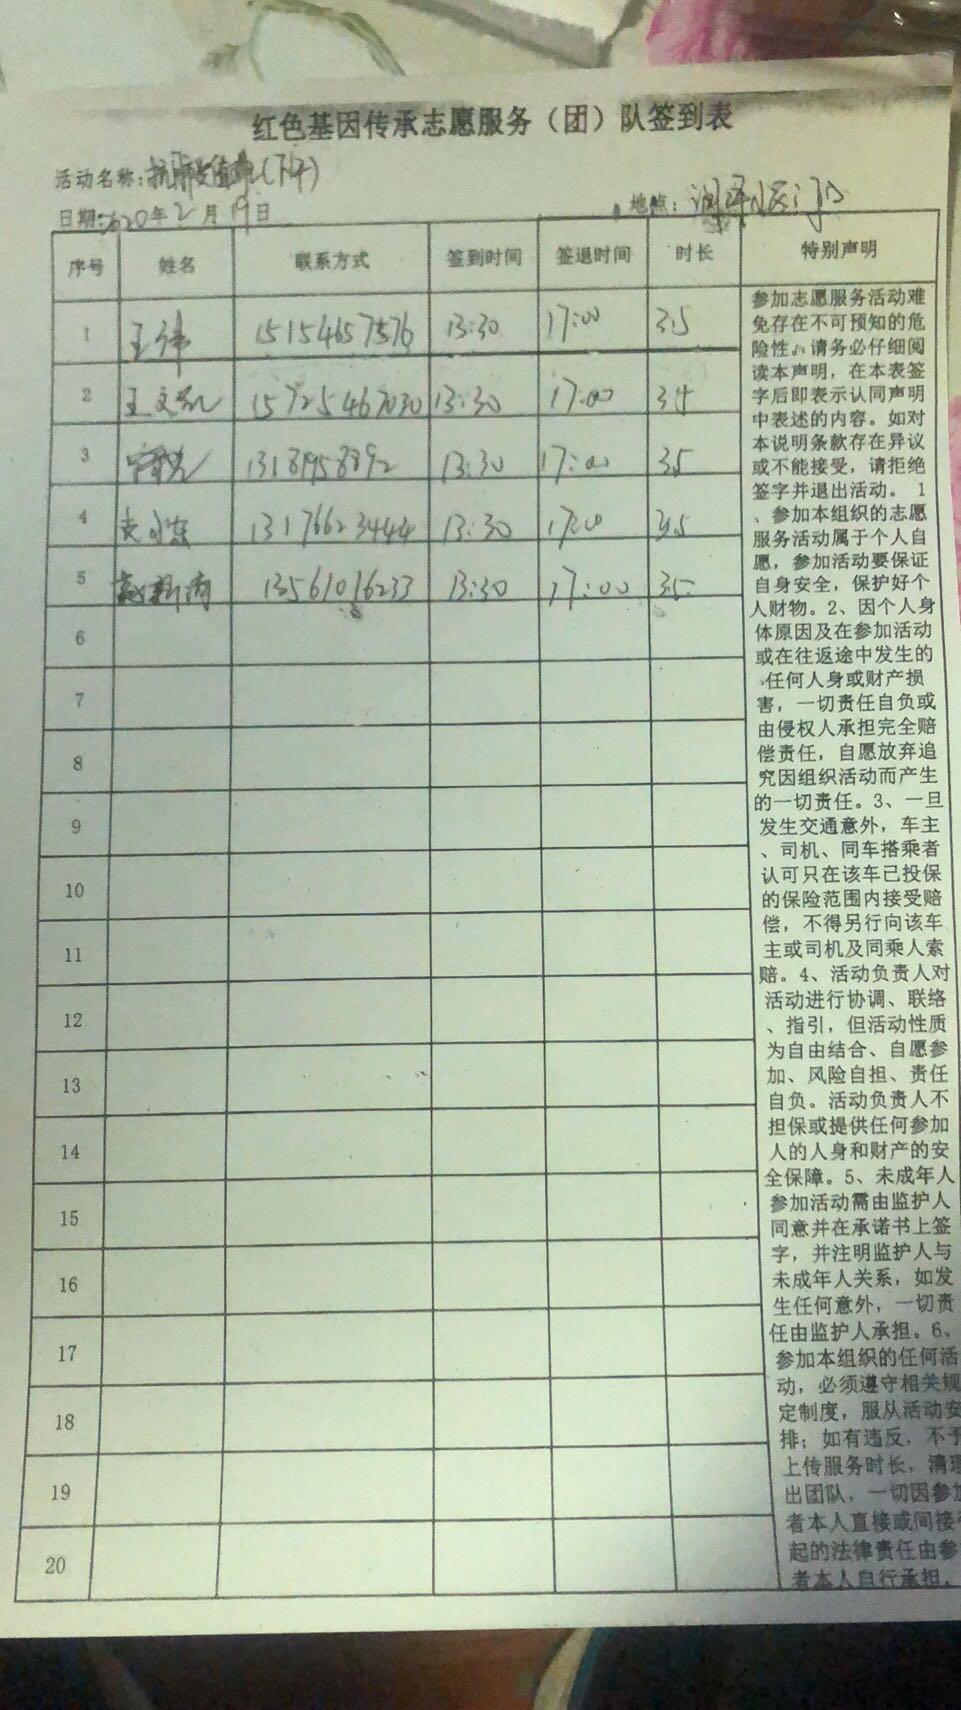 红色基因传承志愿服务（团）队签到表
活动名称：抗肺炎值班（下午）
日期：2020年2月19日 地点：小区门口
序号 姓名 联系方式 签到时间 签退时间 时长 特别声明
1 王伟 15154657576 13:30 17:00 3.5
2 王文 15725467020 13:30 17:00 3.5
3 13181958892 13:30 17:00 3.5
4 13176623444 13:30 17:00 3.5
5 13561016233 13:30 17:00 3.5
6
7
8
9
10
11
12
13
14
15
16
17
18
19
20
参加志愿服务活动难
免存在不可预知的危
险性。请务必仔细阅
读本声明，在本表签
字后即表示认同声明
中表述的内容。如对
本说明条款存在异议
或不能接受，请拒绝
签字并退出活动。 1
、参加本组织的志愿
服务活动属于个人自
愿，参加活动要保证
自身安全，保护好个
人财物。2、因个人身
体原因及在参加活动
或在往返途中发生的
任何人身或财产损
害，一切责任自负或
由侵权人承担完全赔
偿责任，自愿放弃追
究因组织活动而产生
的一切责任。3、一旦
发生交通意外，车主
、司机、同车搭乘者
认可只在该车已投保
的保险范围内接受赔
偿，不得另行向该车
主或司机及同乘人索
赔。4、活动负责人对
活动进行协调、联络
、指引，但活动性质
为自由结合、自愿参
加、风险自担、责任
自负。活动负责人不
担保或提供任何参加
人的人身和财产的安
全保障。5、未成年人
参加活动需由监护人
同意并在承诺书上签
字，并注明监护人与
未成年人关系，如发
生任何意外，一切责
任由监护人承担。6、
参加本组织的任何活
动，必须遵守相关规
定制度，服从活动安
排；如有违反，不予
上传服务时长，清理
出团队，一切因参加
者本人直接或间接引
起的法律责任由参
者本人自行承担。